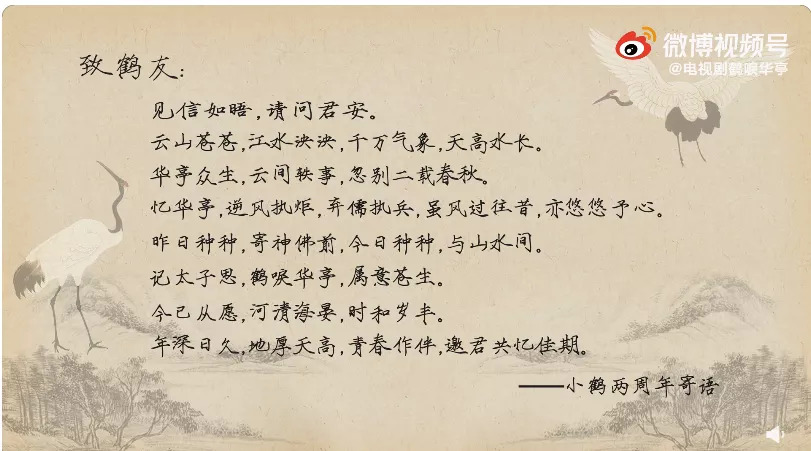 微博视频号
@电视剧鹤唳华亭
致鹤友：
见信如晤，请问君安。
云山苍苍，江水泱泱，千万气象，天高水长。
华亭众生，云间轶事，忽别二载春秋。
忆华亭，逆风执炬，弃儒执兵，虽风过往昔，亦悠悠予心。
昨日种种，寄神佛前，今日种种，与山水间。
记太子思，鹤唳华亭，属意苍生。
今已从愿，河清海晏，时和岁丰。
年深日久，地厚天高，青春作伴，邀君共忆佳期。
——小鹤两周年寄语